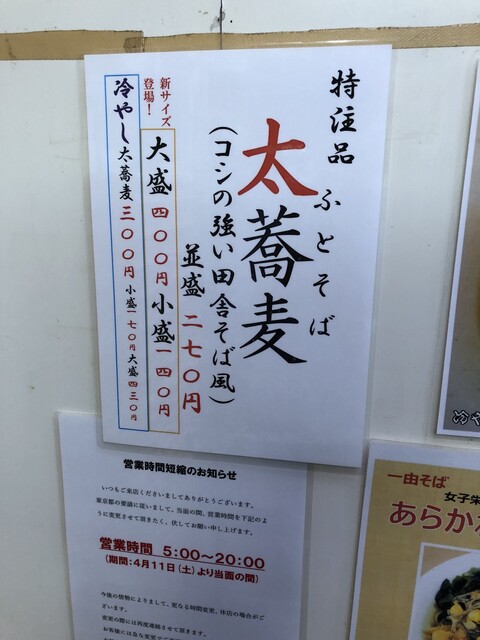 特注品
ふとそば
太蕎麦
(コシの強い田舎そば風)
並盛 二七〇円
新サイズ
登場!
大盛 四〇〇円 小盛 一四〇円
冷やし太蕎麦 三〇〇円 小盛一七〇円 大盛四三〇円
営業時間短縮のお知らせ
いつもご来店くださいましてありがとうございます。
東京都の要請に従いまして、当面の間、営業時間を下記のよ
うに変更させて頂きたく、伏してお願い申し上げます。
営業時間 5:00〜20:00
(期間:4月11日(土)より当面の間)
今後の情勢によりまして、更なる時間変更、休店の場合がご
ざいます。
変更の際には再度連絡させて頂きます。
お客様には急な変更で
冷や
一由そば
女子栄
あらか